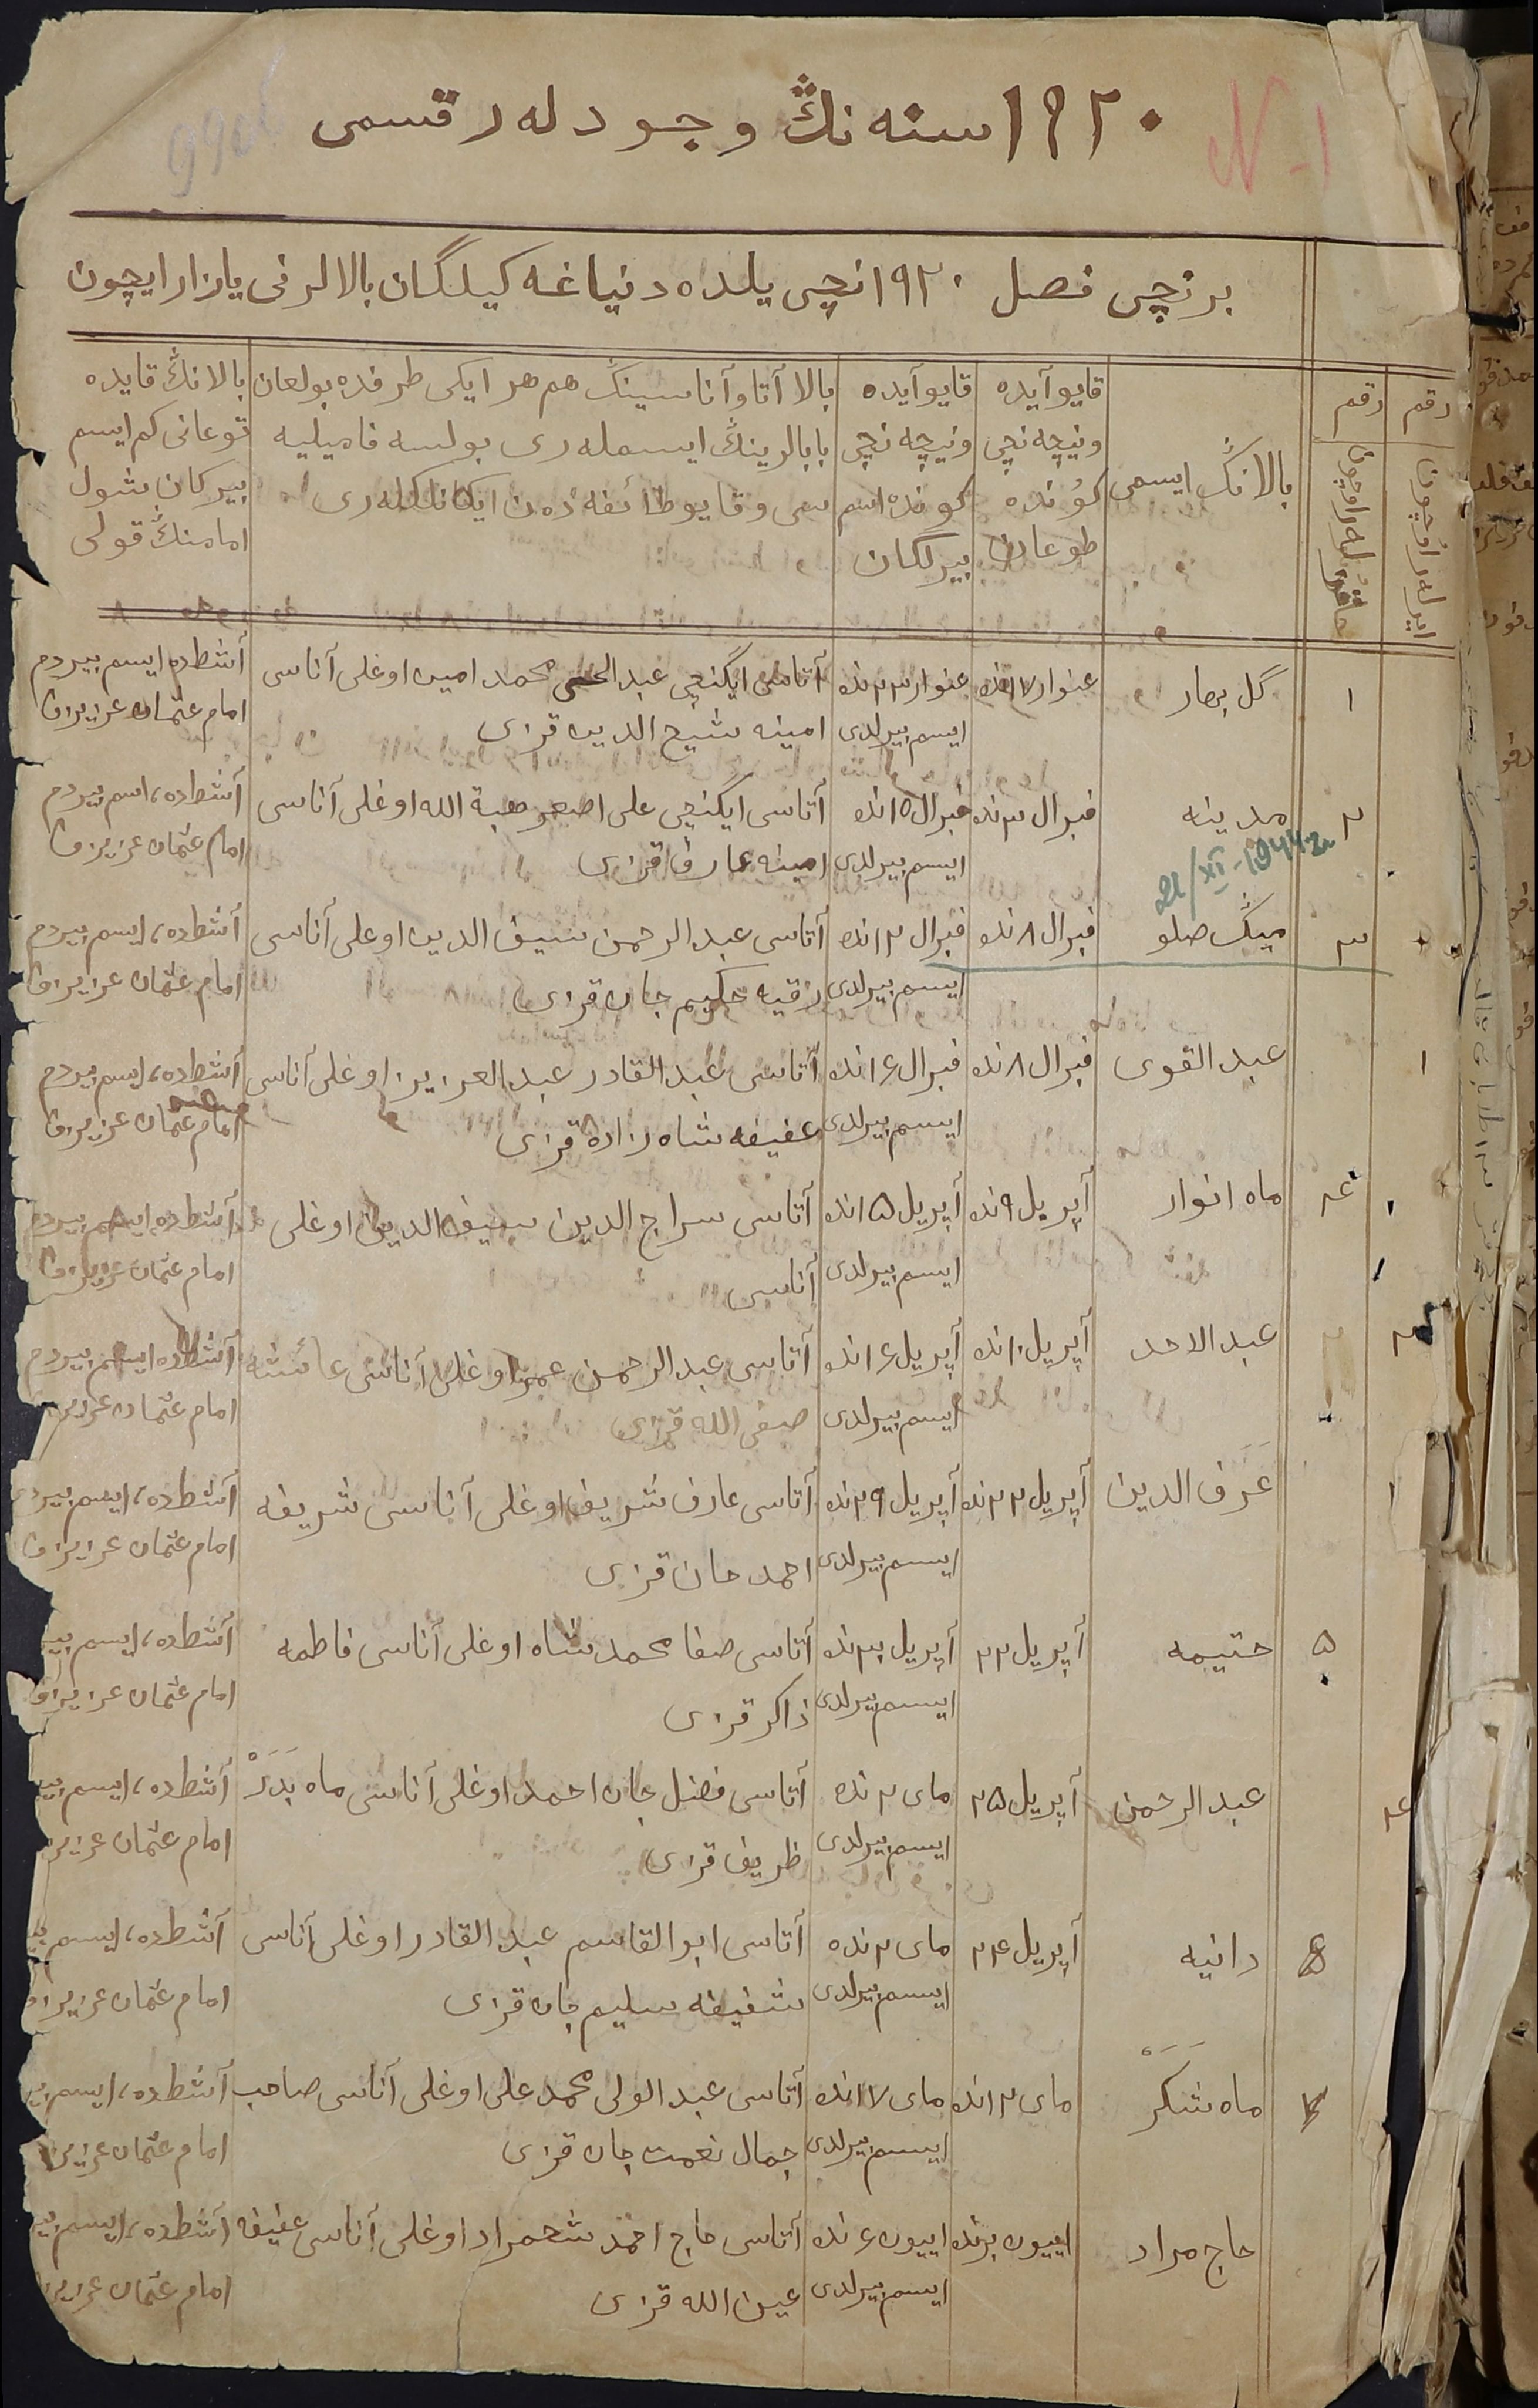 ١٩٢٠ سنه نڭ وجودله ر قسمی
N-1
برنچی فصل ١٩٢٠ نچی یلده دنیاغه کیلگان بالالرنی یازار ایچون
رقم
ایرله ر اوچون
رقم
بالانڭ ایسمی
قایو آیده
ونیچه نچی
کؤنده
طوعان
قایو آیده
ونیچه نچی
کونده اسم
بیرلگان
بالا آتا و آناسینڭ هم هر ایکی طرفده بولعان
بابالرینڭ ایسمله ری بولسه فامیلیه
سی وقایو طائفه ده ن ایکانلکله ری
بالانڭ قایده
توعانی کم ایسم
بیرکان شول
امامنڭ قولی
١
گل بهار
عنوار ١٧نده
عنوار ٢٣نده
ایسم بیرلدی
آتاسی ایگنچی عبدالحی محمد امین اوغلی آناسی
امینه شیخ الدین قزی
أشطده ایسم بیردم
امام عثمان عزیزوف
٢
مدینه
فبرال ٣نده
فبرال ١٥نده
ایسم بیرلدی
آتاسی ایگنچی علی اصعر هبة الله اوغلی آناسی
امینه عارف قزی
أشطده، اسم بیردم
امام عثمان عزیزوف
21/XI-1944
٣
مینڭ صلو
فبرال ٨نده
فبرال ١٢نده
ایسم بیرلدی
آتاسی عبدالرحمن سیف الدین اوغلی آناسی
رقیه حکیم جان قزی
أشطده، ایسم بیردم
امام عثمان عزیزوف
١
عبدالقوی
فبرال ٨نده
فبرال ١٦نده
ایسم بیرلدی
آتاسی عبدالقادر عبدالعزیز اوغلی آناسی
عفیفه شاه زاده قزی
أشطده، ایسم بیردم
امام عثمان عزیزوف
٤
ماه انوار
أپریل ٩نده
أپریل ١٥نده
ایسم بیرلدی
آتاسی سراج الدین سیف الدین اوغلی
آناسی
أشطده ایسم بیردم
امام عثمان عزیزوف
٢
عبدالاحد
أپریل ١٠نده
أپریل ١٦نده
ایسم بیرلدی
آتاسی عبدالرحمن عمر اوغلی آناسی عائشه
صفی الله قزی
أشطده ایسم بیردم
امام عثمان عزیزوف
عرف الدین
أپریل ٢٢نده
أپریل ٢٩نده
ایسم بیرلدی
آتاسی عارف شریف اوغلی آناسی شریفه
احمد جان قزی
أشطده، ایسم بیردم
امام عثمان عزیزوف
٥
ختیمه
أپریل ٢٢
أپریل ٣٠نده
ایسم بیرلدی
آتاسی صفا محمدشاه اوغلی آناسی فاطمه
ذاکر قزی
أشطده، ایسم بیر
امام عثمان عزیزوف
٤
عبدالرحمن
أپریل ٢٥
مای ٢نده
ایسم بیرلدی
آتاسی فضل جان احمد اوغلی آناسی ماه بَدَرْ
ظریف قزی
أشطده، ایسم بیر
امام عثمان عزیز
٦
دانیه
أپریل ٢٤
مای ٢نده
ایسم بیرلدی
آتاسی ابوالقاسم عبدالقادر اوغلی آناسی
شفیفه سلیم جان قزی
أشطده، ایسم بی
امام عثمان عزیزو
٧
ماه شَکَرْ
مای ١٢نده
مای ١٧نده
ایسم بیرلدی
آتاسی عبدالولی محمد علی اوغلی آناسی صاحب
جمال نعمت جان قزی
أشطده، ایسم بی
امام عثمان عزیزو
حاج مراد
اییون برنده
اییون ٦نده
ایسم بیرلدی
آتاسی حاج احمد شحمراد اوغلی آناسی عفیفه
عین الله قزی
أشطده، ایسم بی
امام عثمان عزیزو